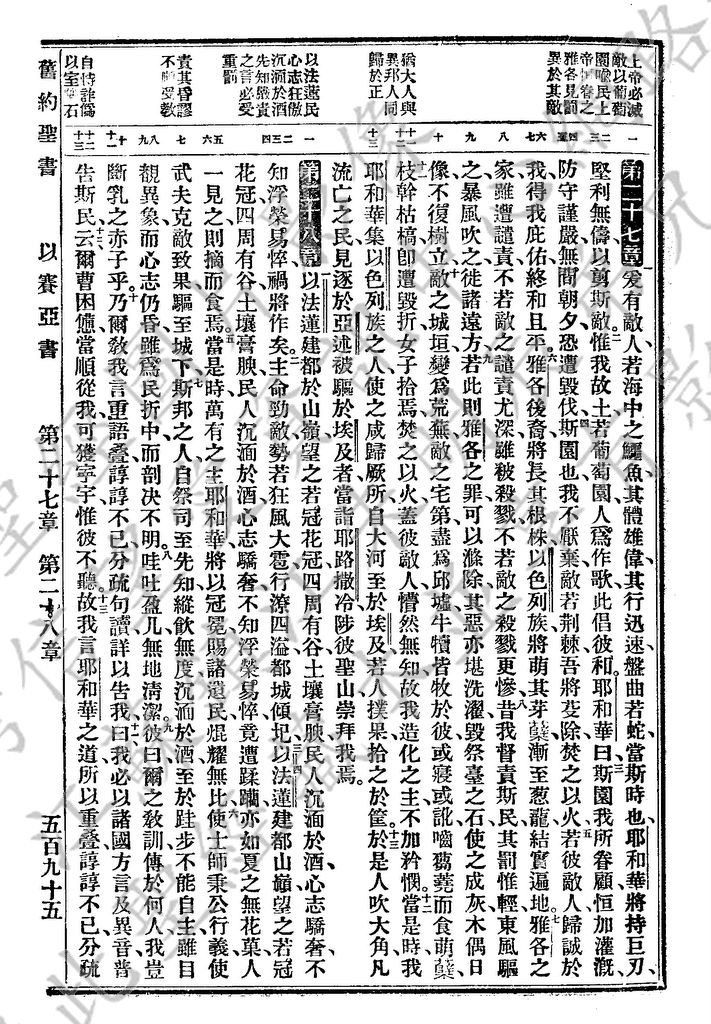 上帝必滅
敵以葡萄
園喻民上
帝恒眷之
雅各見罰
異於其敵
猶大人與
異邦人同
歸於正
以法蓮民
心志狂傲
沉湎於酒
先知戮責
之言必受
重罰
責其昏謬
不順受教
自恃詐偽
以室 石
舊約聖書 以賽亞書 第二十七章 第二十八章 五百九十五
第二十七章爰有敵人若海中之鱷魚其體雄偉其行迅速盤曲若蛇當斯時也耶和華將持巨刃
堅利無儔以剪斯敵惟我故土若葡萄園人爲作歌此倡彼和耶和華曰斯園我所眷顧恒加灌溉
防守謹嚴無間朝夕恐遭毀伐斯園也我不厭棄敵若荆棘吾將芟除焚之以火若彼敵人歸誠於
我得我庇佑終和且平雅各後裔將長其根株以色列族將萌其芽蘖漸至葱蘢結實遍地雅各之
家雖遭譴責不若敵之譴責尤深雖被殺戮不若敵之殺戮更慘昔我督責斯民其罰惟輕東風驅
之暴風吹之徙諸遠方若此則雅各之罪可以滌除其惡亦堪洗濯毀祭臺之石使之成灰木偶日
像不復樹立敵之城垣變爲荒蕪敵之宅第盡爲邱墟牛犢皆牧於彼或寢或訛嚙芻蕘而食萌蘖
枝幹枯槁卽遭毀折女子拾焉焚之以火蓋彼敵人懵然無知故我造化之主不加矜憫當是時我
耶和華集以色列族之人使之咸歸厥所自大河至於埃及若人撲果拾之於筐於是人吹大角凡
流亡之民見逐於亞述被驅於埃及者當詣耶路撒冷陟彼聖山崇拜我焉
第二十八章以法蓮建都於山嶺望之若冠花冠四周有谷土壤膏腴民人沉湎於酒心志驕奢不
知浮榮易悴禍將作矣主命勁敵勢若狂風大雹行潦四溢都城傾圮以法蓮建都山巔望之若冠
花冠四周有谷土壤膏腴民人沉湎於酒心志驕奢不知浮榮易悴竟遭蹂躪亦如夏之無花菓人
一見之則摘而食焉當是時萬有之主耶和華將以冠冕賜諸遺民焜耀無比使士師秉公行義使
武夫克敵致果驅至城下斯邦之人自祭司至先知縱飲無度沉湎於酒至於跬步不能自主雖目
觀異象而心志仍昏雖爲民折中而剖決不明哇吐盈几無地清潔彼曰爾之敎訓傳於何人我豈
斷乳之赤子乎乃爾敎我言重語疊諄諄不已分疏句讀詳以告我曰我必以諸國方言及異音普
告斯民云爾曹困憊當順從我可獲字宇惟彼不聽故我言耶和華之道所以重疊諄諄不已分疏